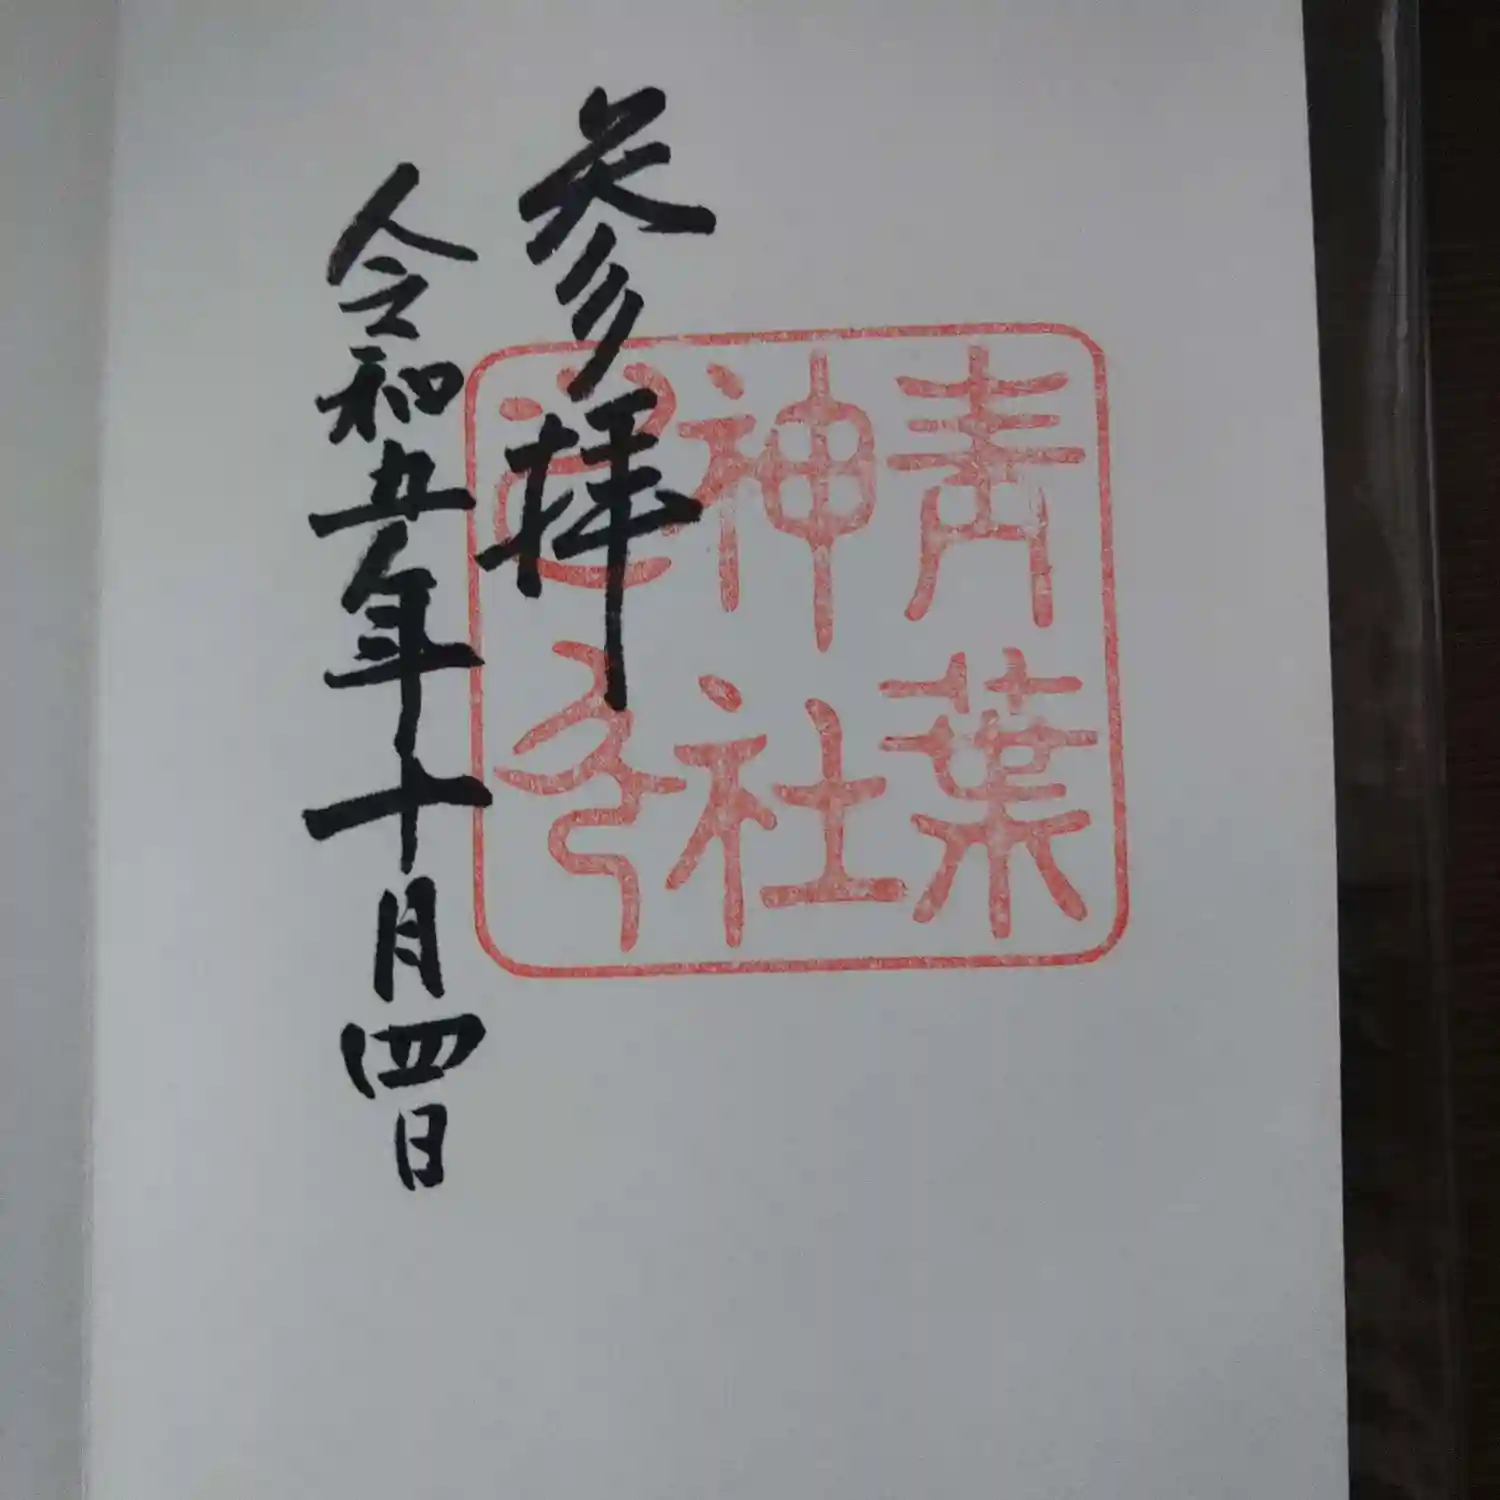 青葉
神社
之印
参拝
令和五年十月四日